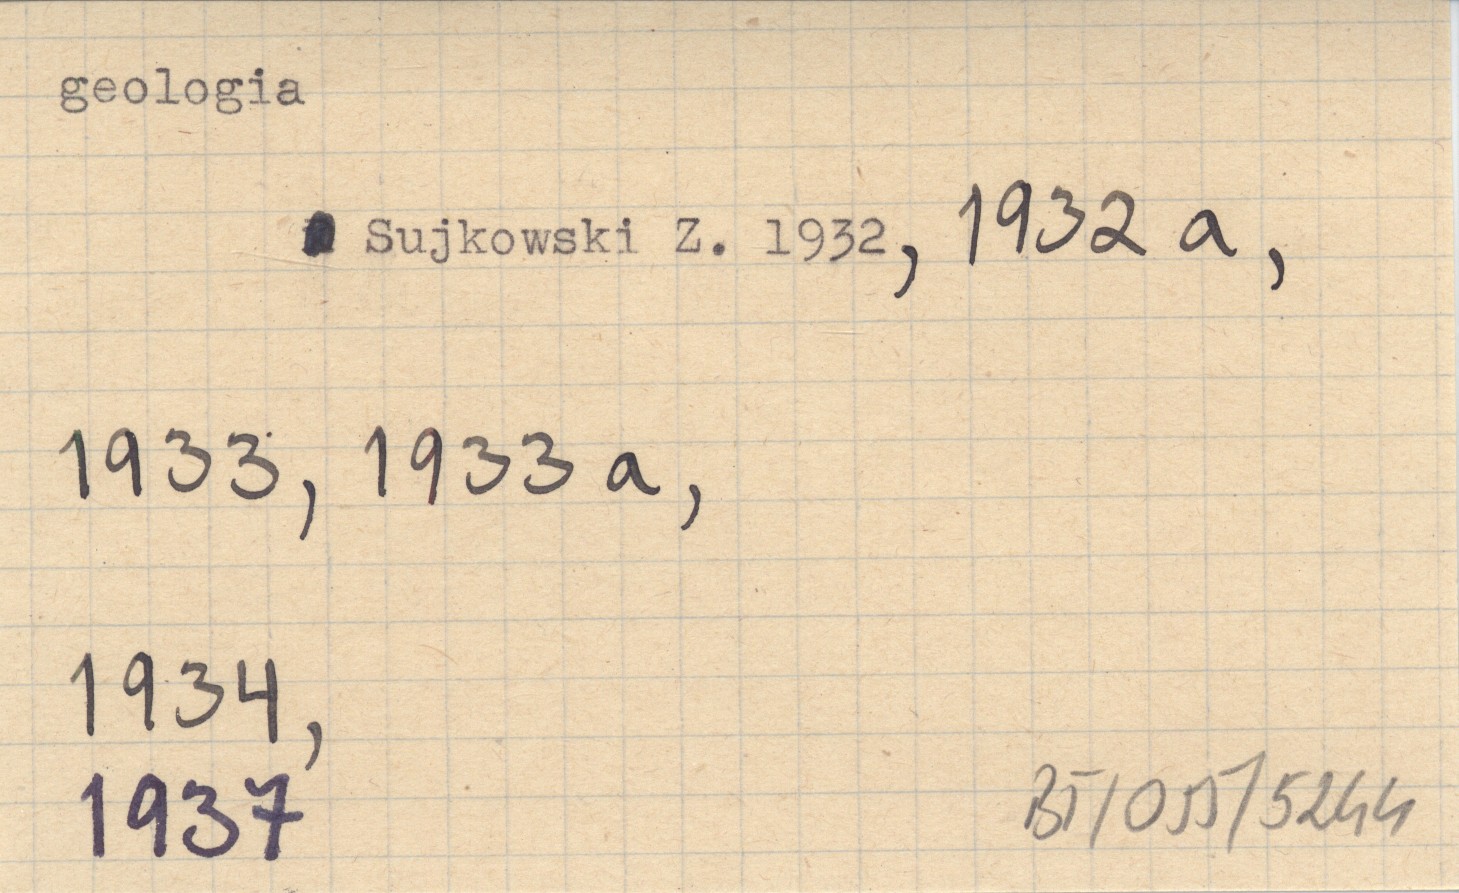 geologia
Sujkowski Z. 1932, 1932 a,
1933, 1933 a,
1934,
1937
BT/055/5244